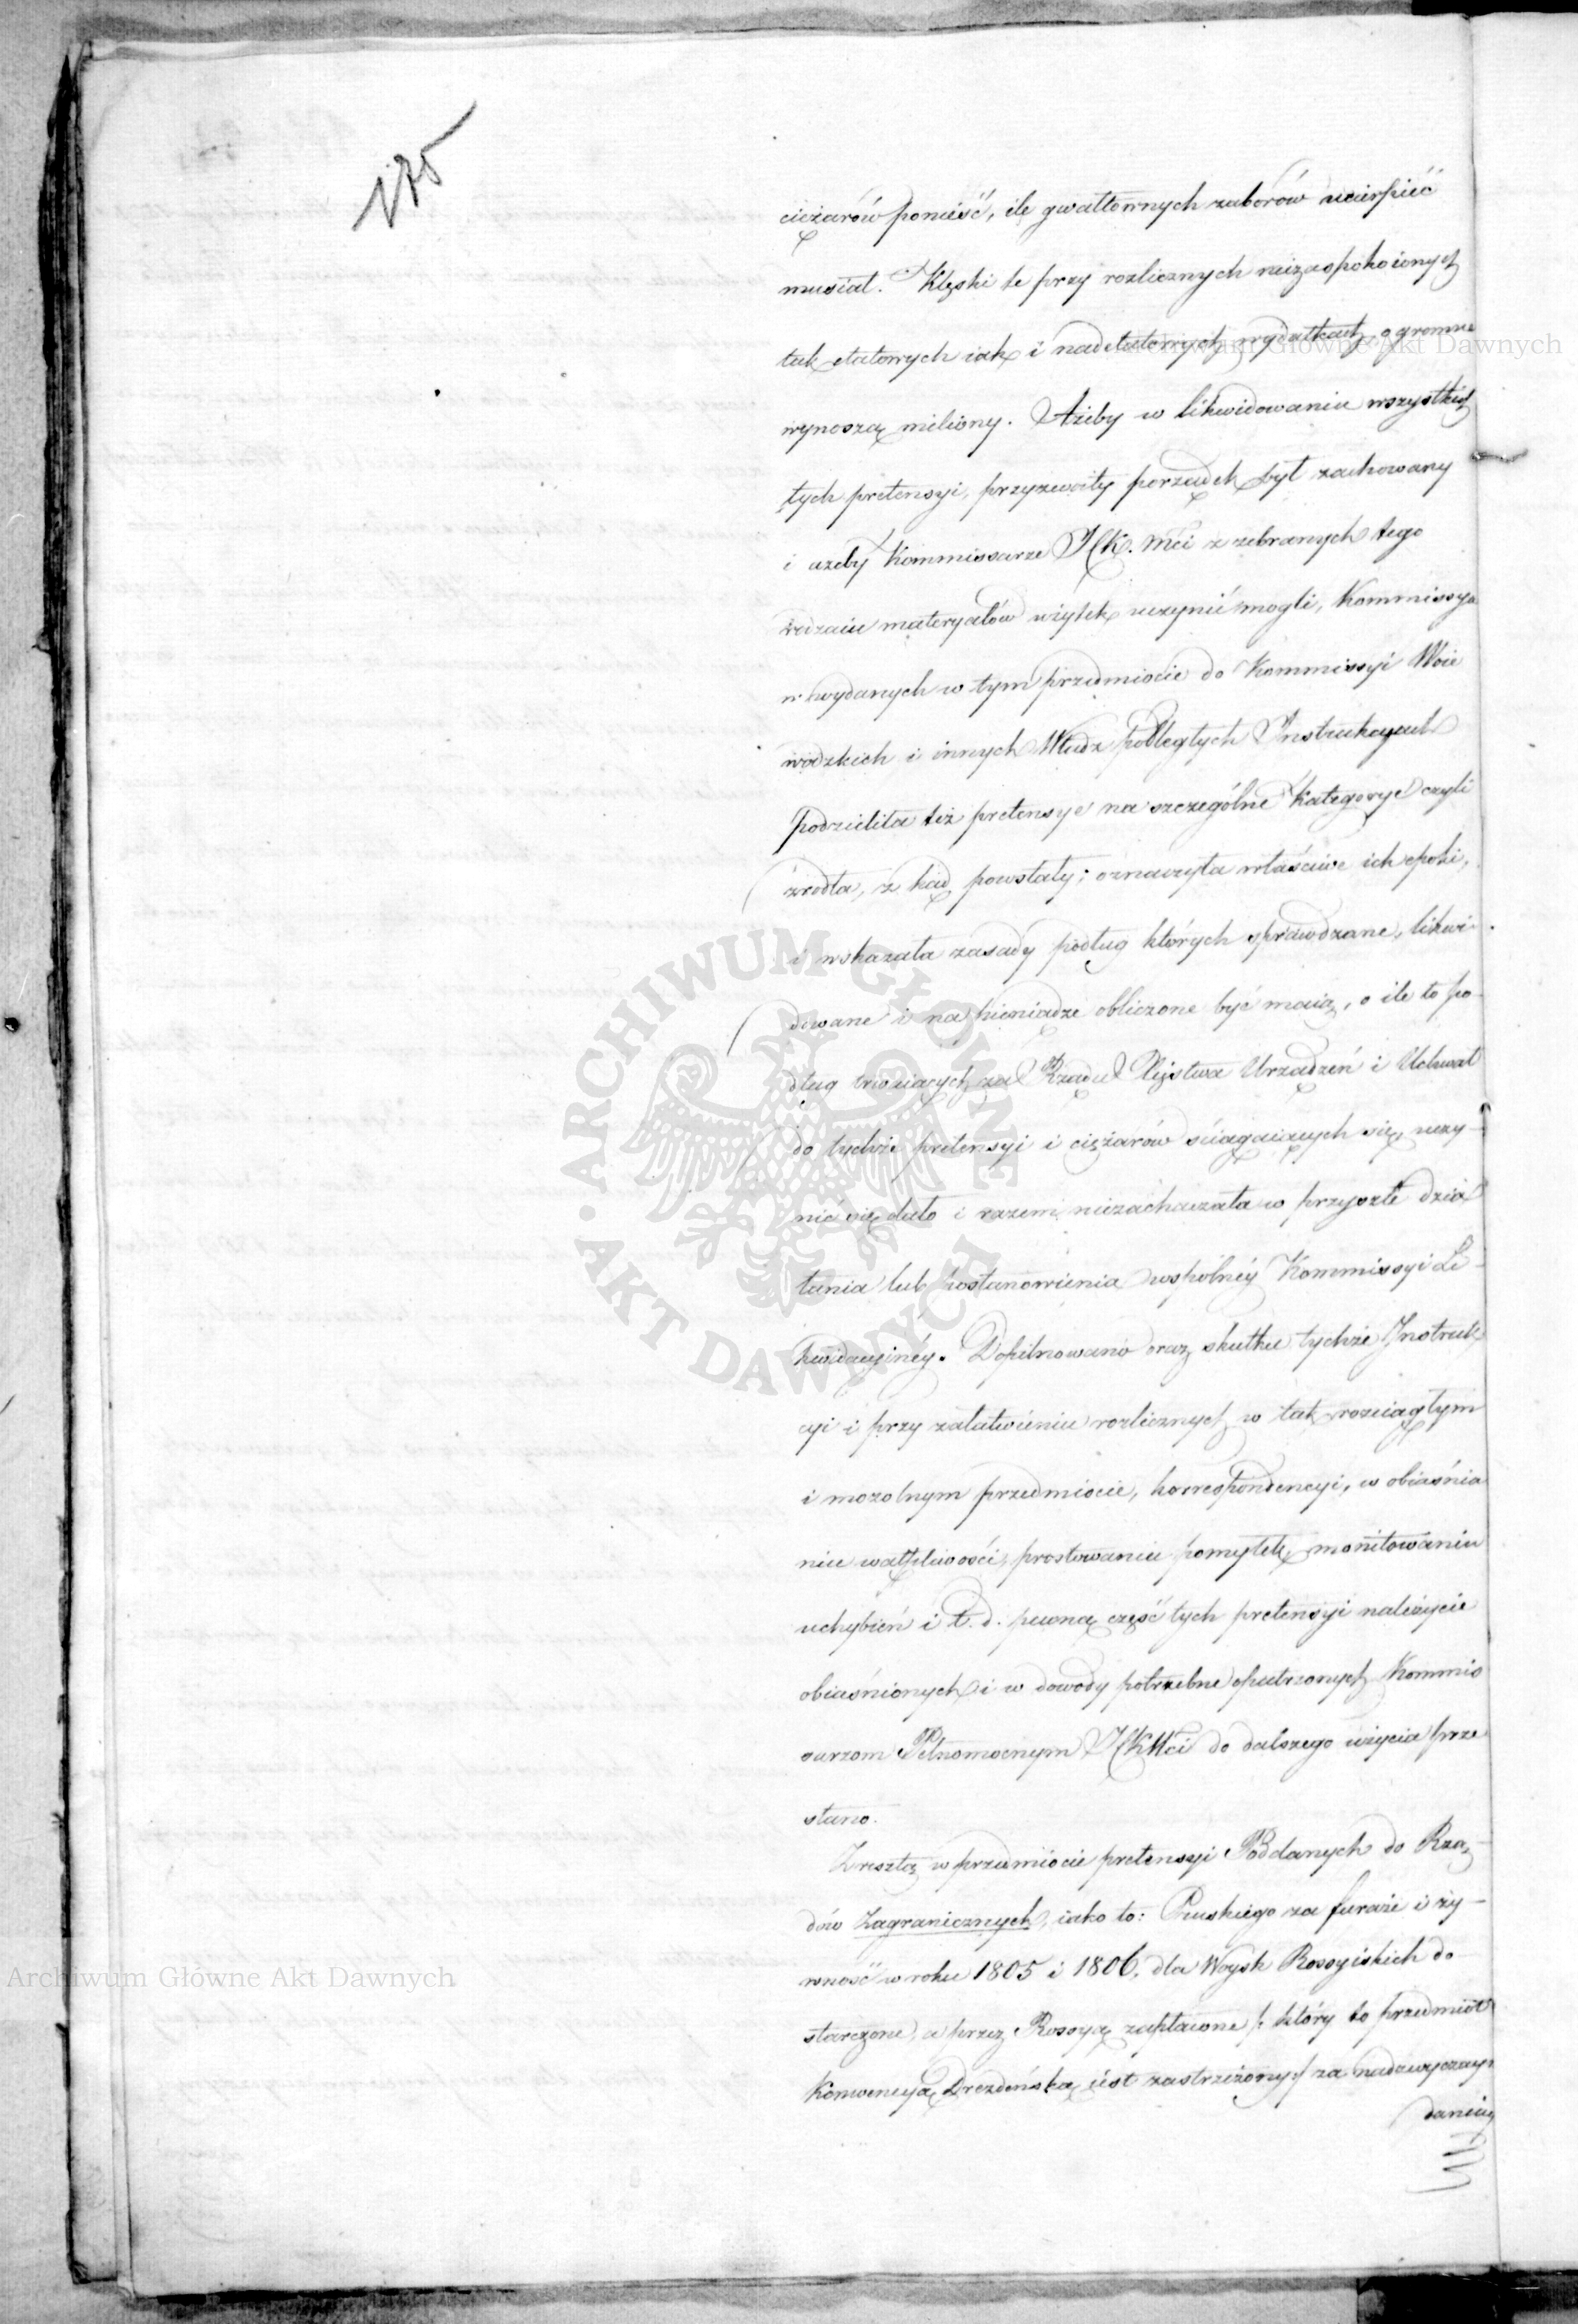 175
ciężarów ponieść, ile gwałtownych zaborów ucierpieć
musiał. Klęski te przy rozlicznych niezaspokoionych
tak etatowych iak i nadetatowych wydatkach, ogromne
wynoszą miliony. Ażeby w likwidowaniu wszystkich
tych pretensyi, przyzwoity porządek był zachowany
i ażeby Kommissarze JCK. Mci z zebranych tego
rodzaiu materyałów użytek uczynić mogli, Kommissya
w wydanych w tym przedmiocie do Kommissyi Woie
wódzkich i innych Władz podległych Instrukcyach
podzieliła też pretensye na szczególne Kategorye czyli
źrodła, z kąd powstały; oznaczyła właściwe ich epoki,
i wskazała zasady podług których sprawdzane, likwi-
dowane i na pieniądze obliczone być maią, o ile to po-
dług trwaiących za Rządu Xięstwa Urządzeń i Uchwał
do tychże pretensyi i ciężarów ściągaiących się, uczy-
nić się dało i razem niezachaczała w przyszłe dzia
łania lub postanowienia wspólnéy Kommissyi Li-
kwidacyinéy. Dopilnowano oraz skutku tychże Instruk
cyi i przy załatwieniu rozlicznych w tak rozciągłym
i mozolnym przedmiocie, korrespondencyi, w obiaśnia
niu wątpliwości, prostowaniu pomyłek, monitowaniu
uchybień i t. d. pewną część tych pretensyi należycie
obiaśnionych i w dowody potrzebne opatrzonych Kommis
sarzom Pełnomocnym JCKMci do dalszego użycia prze
słano.
Zresztą w przedmiocie pretensyi Poddanych do Rzą-
dów Zagranicznych, iako to: Pruskiego za furaże i ży-
wność w roku 1805 i 1806, dla Woysk Rossyiskich do
starczone, a przez Rossyą zapłacone /: który to przedmiot
Konwencyą Drezdeńską iest zastrzeżony :/ za nadzwyczay
Archiwum Główne Akt Dawnych
Archiwum Główne Akt Dawnych
ARCHIWUM GŁÓWNE · AKT DAWNYCH